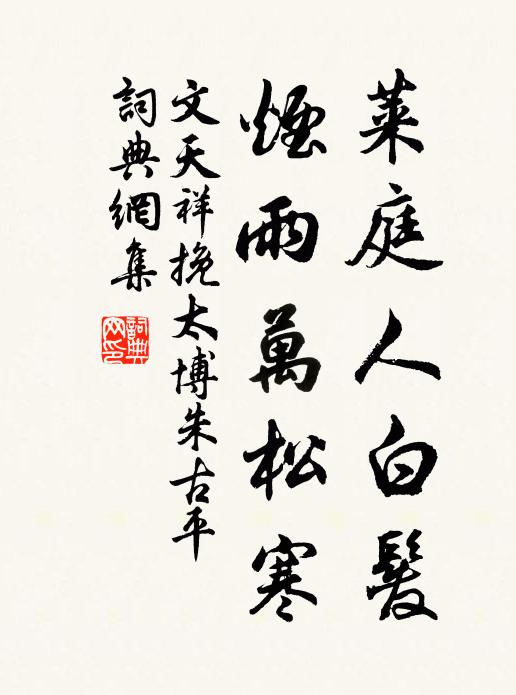 萊庭人白髮
煙雨萬松寒
文天祥挽太博朱古平
詞典網集
詞典
网印